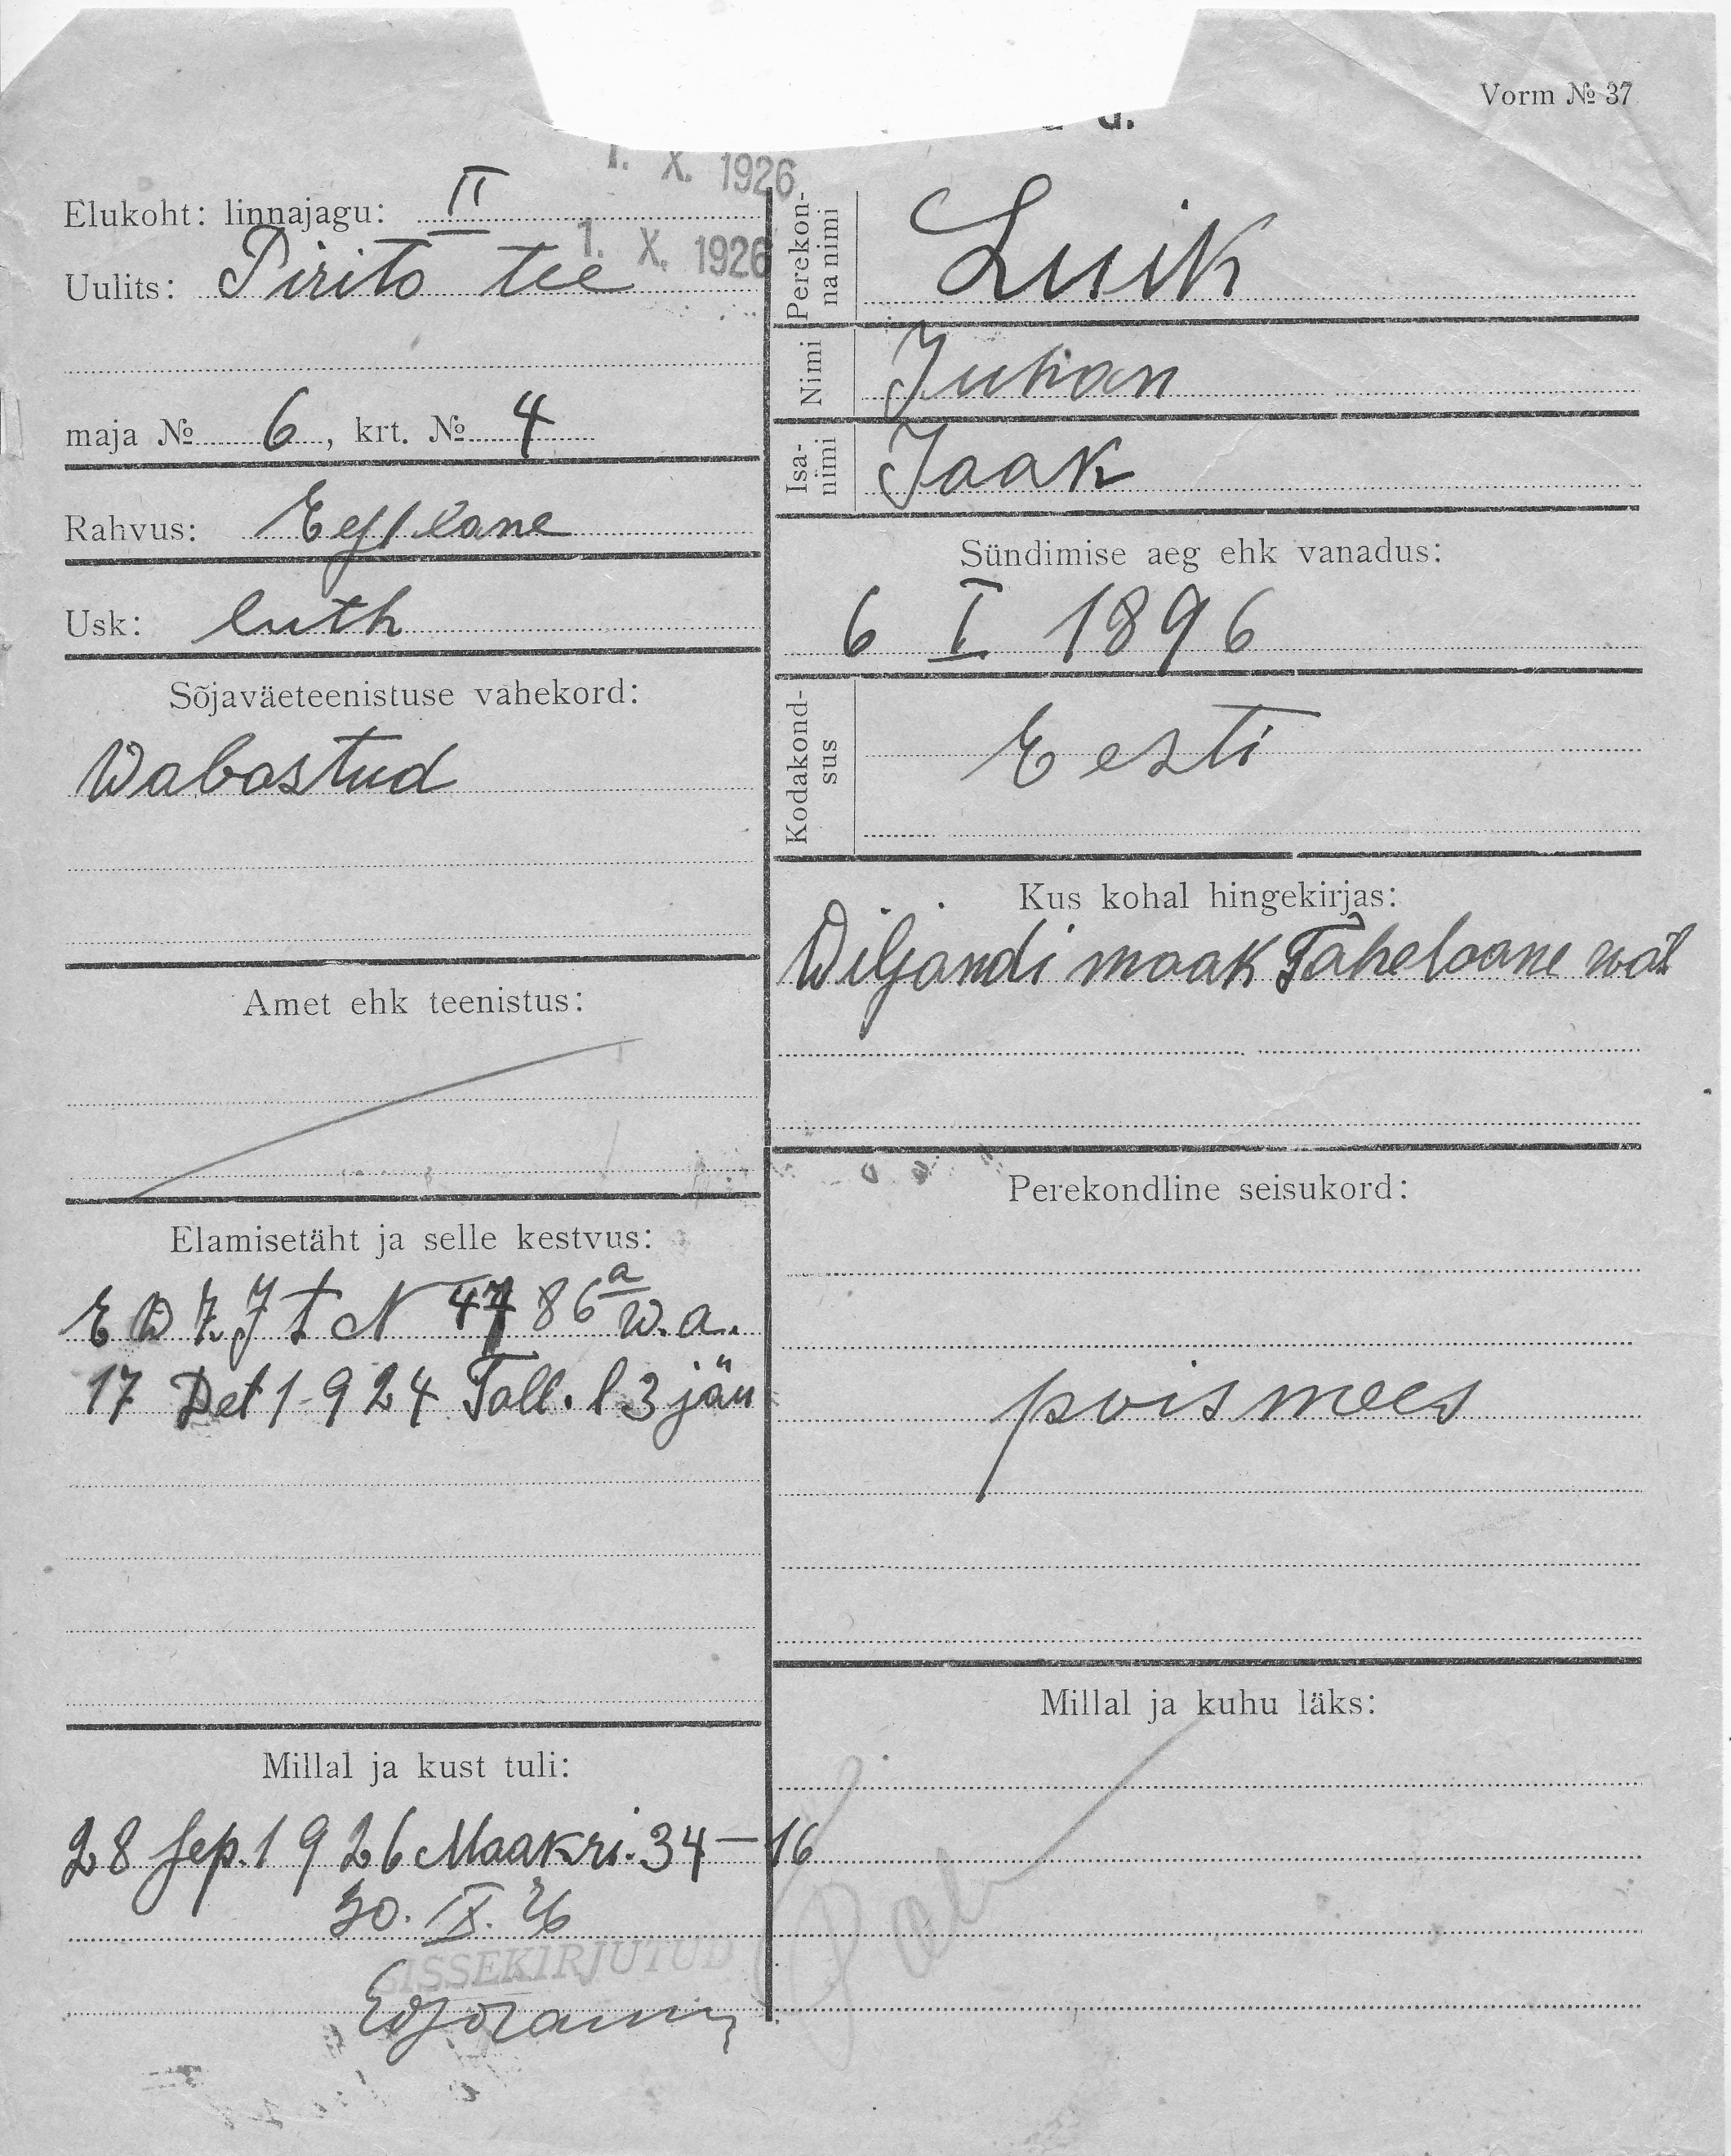 Vorm № 37
1. X. 1926
1. X. 1926
Elukoht: linnajagu: II
Uulits: Pirita tee
maja № 6, krt. № 4
Rahvus: Eestlane
Usk: luth
Sõjaväeteenistuse vahekord:
Wabastud
Amet ehk teenistus:
Elamisetäht ja selle kestvus:
E W 7. J t N 4786 a W. a.
17 Det 1924 Tall. l 3 jän
Millal ja kust tuli:
28 sep. 1926 Maakri. 34—16
30. IX. 26
SISSEKIRJUTUD
Perekonna nimi
Luik
Nimi
Juhan
Isanimi
Jaak
Sündimise aeg ehk vanadus:
6 I 1896
Kodakondsus
Eesti
Kus kohal hingekirjas:
Wiljandi maak Tähelaane wal
Perekondline seisukord:
poismees
Millal ja kuhu läks: